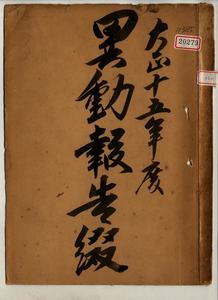 大正十五年度
異動報告綴
20279